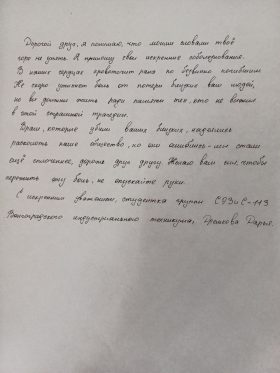 Дорогой друг, я понимаю, что моими словами твоё
горе не унять. Я приношу свои искренние соболезнования.
В наших сердцах кровоточит рана по безвинно погибшим
Не скоро утихнет боль от потери близких вам людей,
но вы должны жить ради памяти тех, кто не выжил
в этой страшной трагедии.
Враги, которые убили ваших близких, надеялись
расколоть наше общество, но они ошиблись – мы стали
ещё сплочённее, дороже друг другу. Желаю вам сил, чтобы
пережить эту боль, не опускайте руки.
С искренним уважением, студентка группы С-113
Волгоградского индустриального техникума, Дарья.